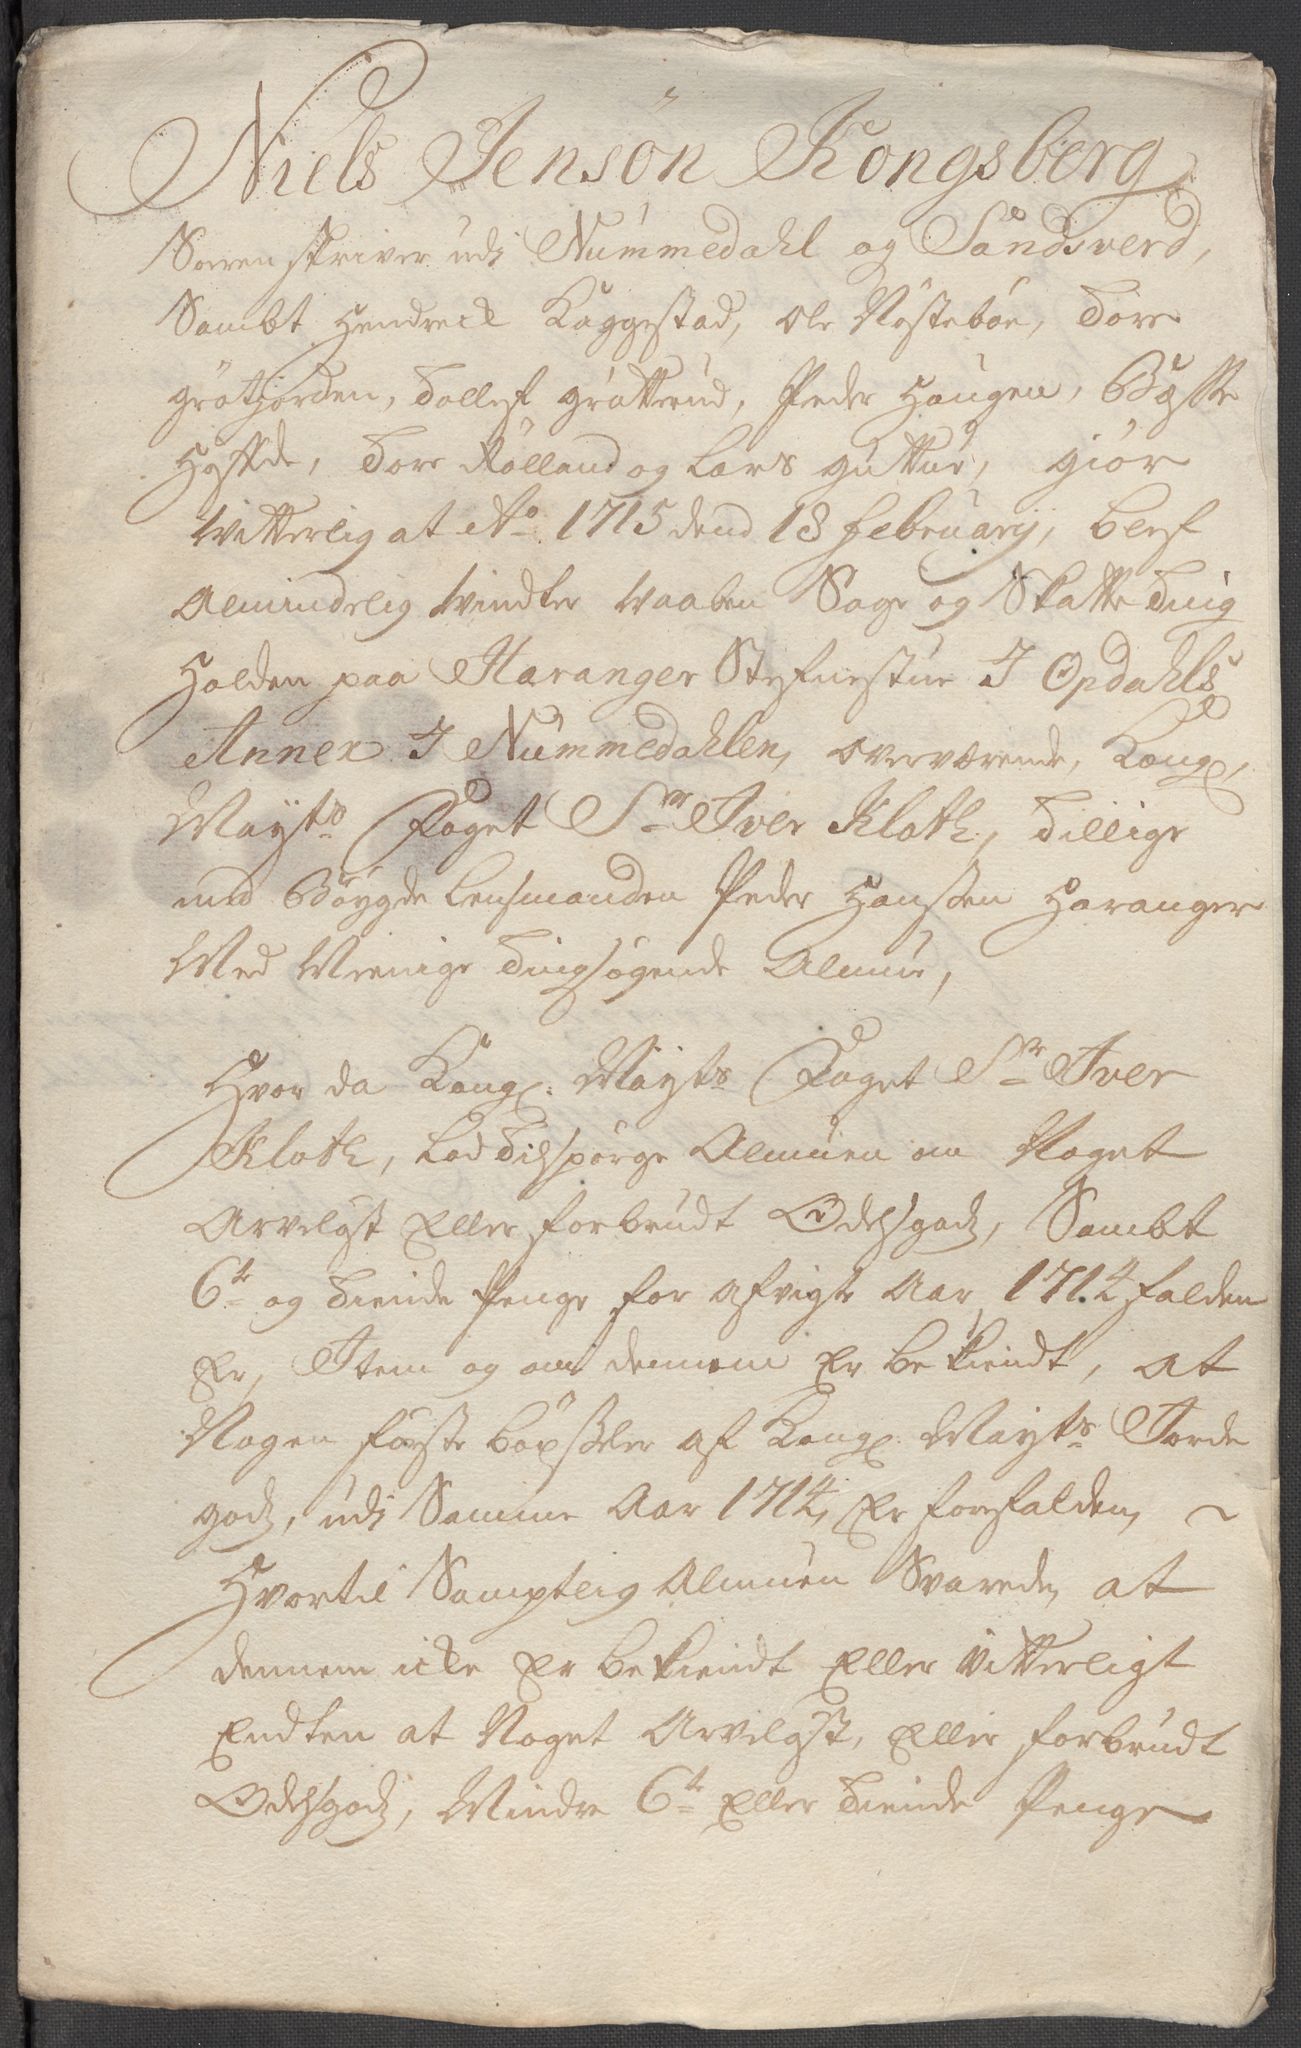 Niels Jensøn Kongsberg
Sorenskriver udi Nummedahl og Sandsverd,
Sambt Hendrick Kaggestad, Ole Nøstebøe, Tore
grøtjorden, Tollef grøtterud, Peder Haugen,
Tore Rølland og Lars guttue, giør
Witterlig at Ao 1715 dend 18 Februarij, blef
Almindelig Vindter Waaben Sage og Skatte Ting
Holden paa Haranger Stefnestue I Opdahls
Annex I Nummedahlen, overværende, Kongl.
Mayts Foget Sr Iver Kloth, Tillige
med Bøygde Lensmanden Peder Hanssen Haranger
Med Meenige Tingsøgende Almue,
Hvor da Kongl. Mayts Foget Sr Iver
Kloth, Lod Tilspørge Almuen om Noget
Arveløst Eller forbrudt Odelsgodz, Sambt
6te og Tiende Penge for afvigte Aar 1714 falden
Er, Item og om dennem Er bekiendt, at
Nogen første bøxseler af Kongl. Mayts Jorde
godz, udi Samme Aar 1714, Er forefalden,
Hvortil Samptlig Almuen Svarede, at
dennem icke Er bekiendt Eller Vitterligt
Endten at Noget Arveløst, Eller forbrudt
Odelsgodz, Mindre 6te Eller Tiende Penge